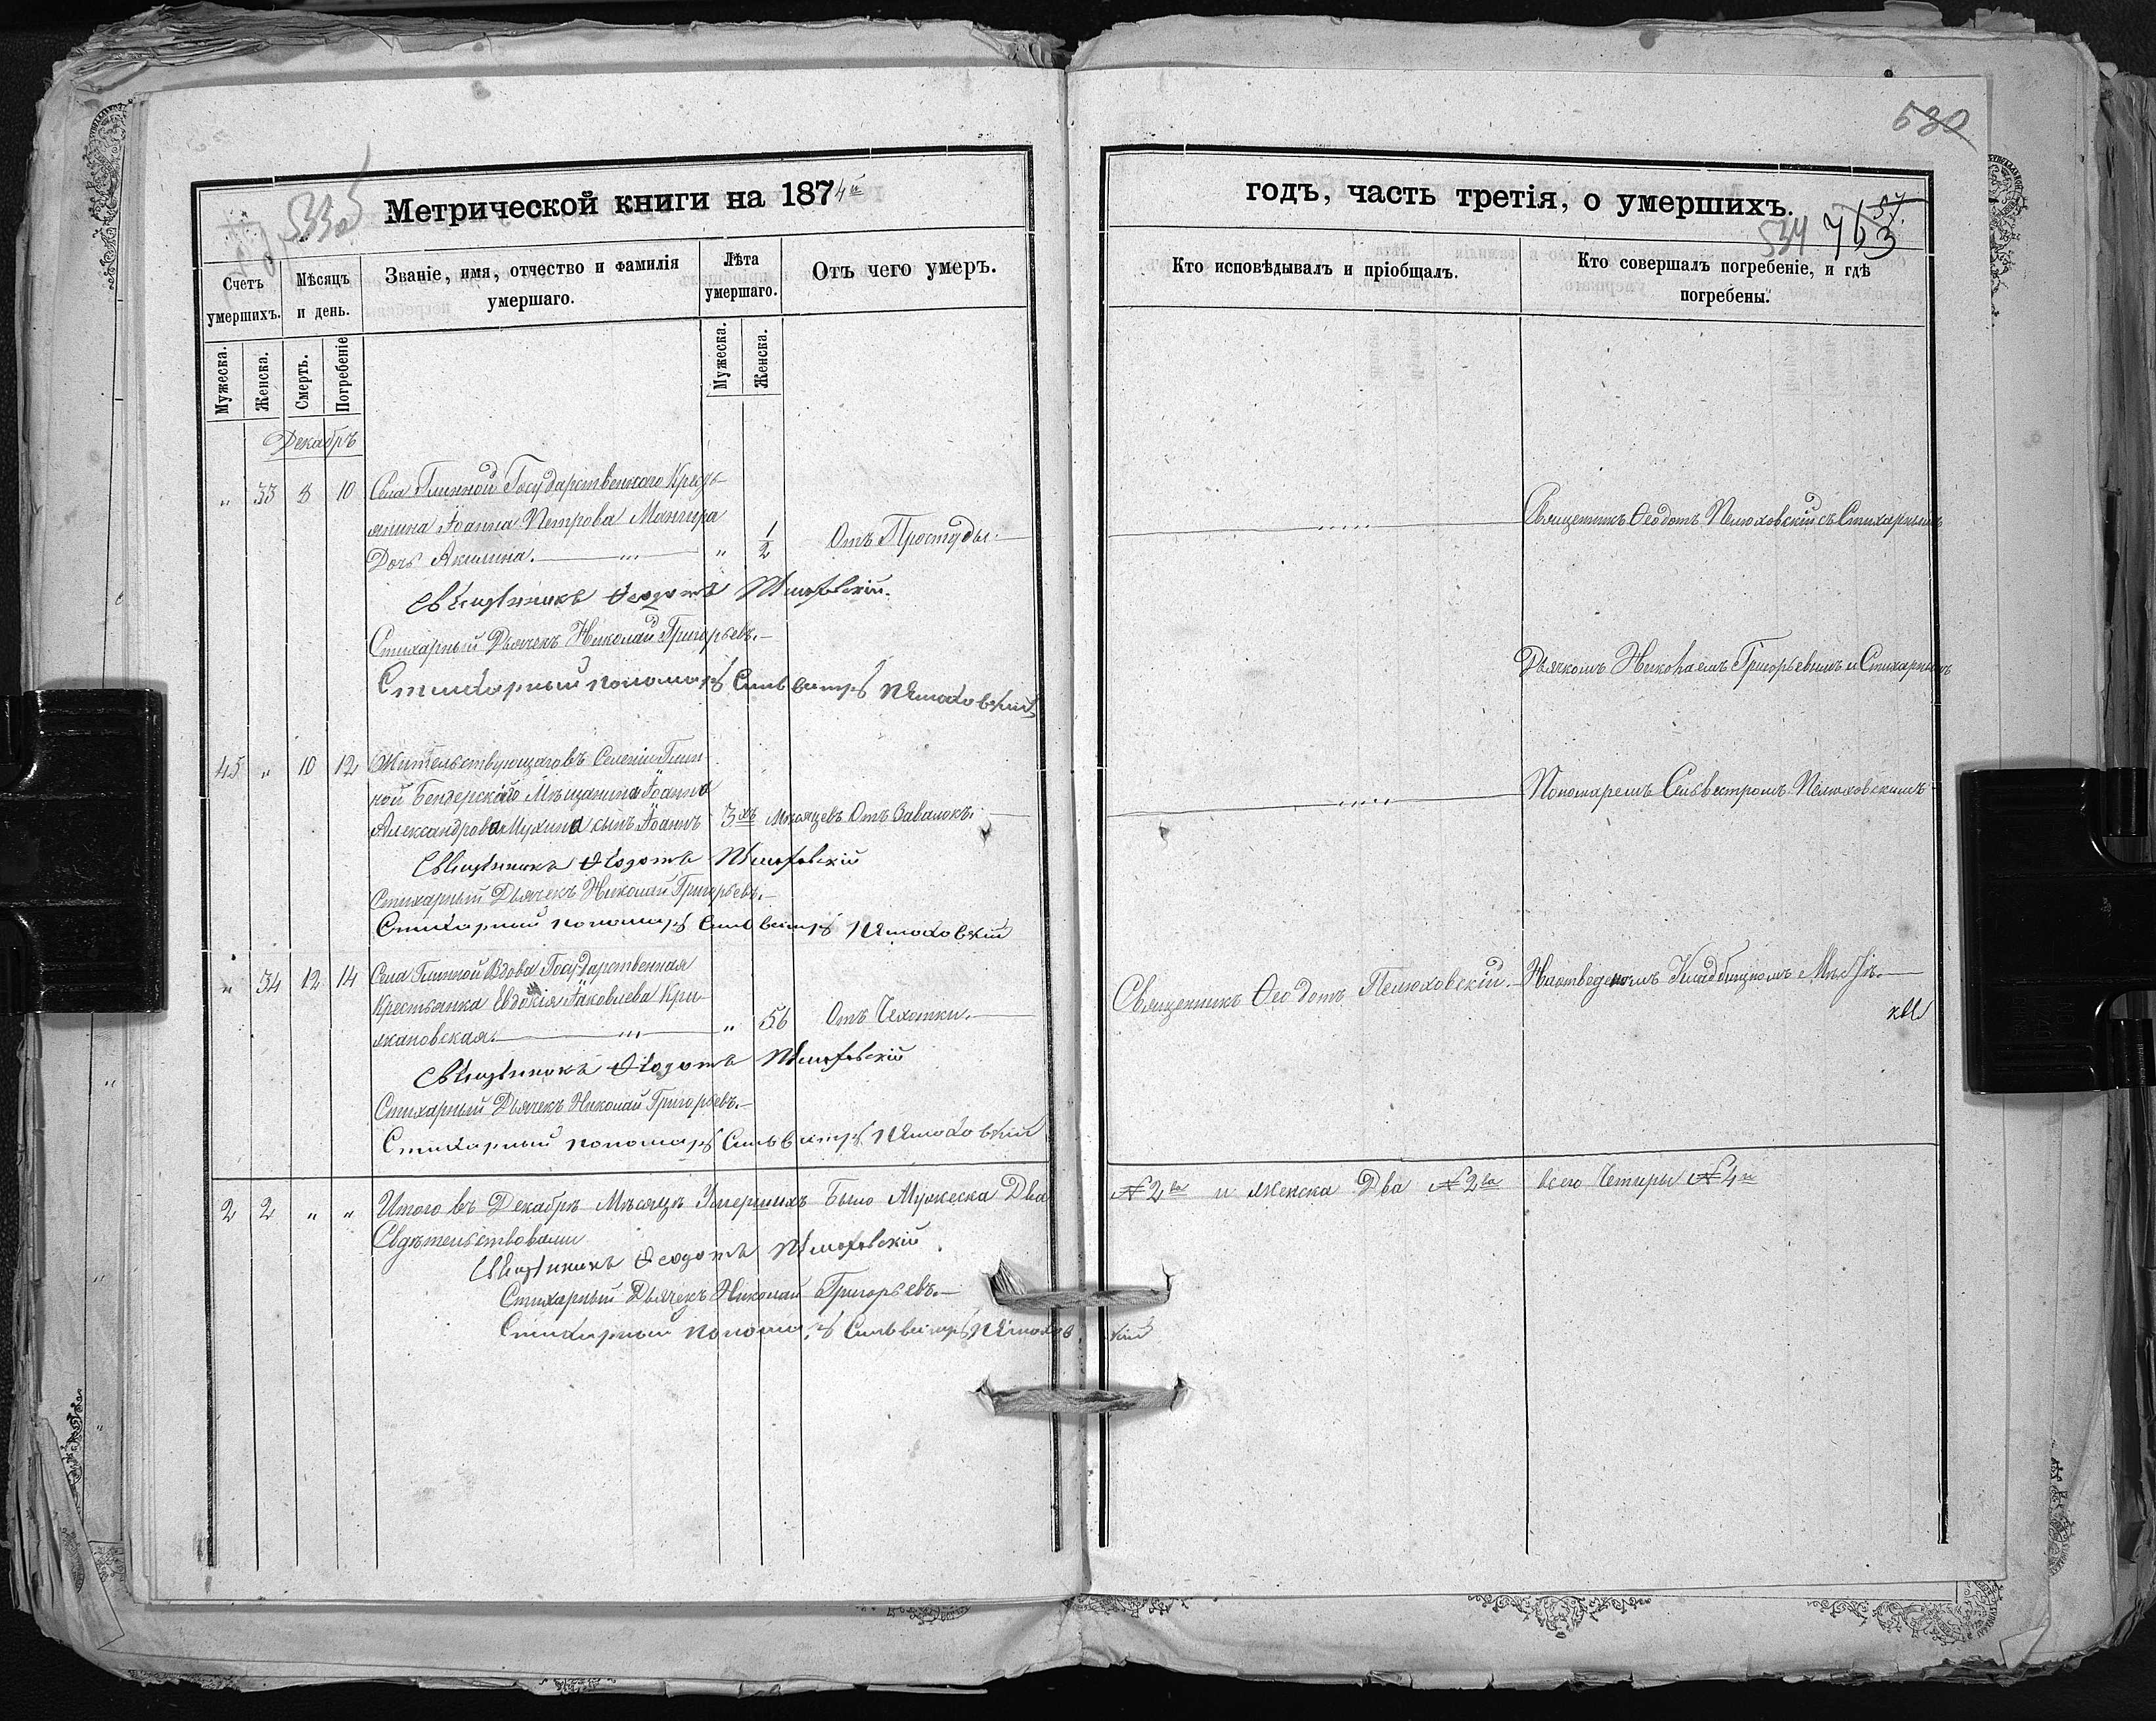 530
533об
Метрической книги на 1874й
годъ, часть третія, о умершихъ.
57.
534 763
Счетъ умершихъ.
Мѣсяцъ и день.
Званіе, имя, отчество и фамилія умершаго.
Лѣта умершаго.
Отъ чего умеръ.
Кто исповѣдывалъ и пріобщалъ.
Кто совершалъ погребеніе, и гдѣ погребены.
Мужеска.
Женска.
Смерть.
Погребеніе
Мужеска.
Женска.
Декабрь
„ 33 8 10 Села Глинной Государственного Кресть
янина Іоанна Петрова Мангира
Дочь Акилина. „ 1/2 Отъ Простуды.
Священникъ Ѳеодотъ Пелюховскій.
Стихарный Дьячекъ Николай Григорьевъ.
Стихарный пономарь Сильвестръ Пелюховскій
Священникъ Ѳеодотъ Пелюховскій съ Стихарнымъ
Дьячкомъ Николаемъ Григорьевымъ и Стихарнымъ
45 „ 10 12 Жительствующаго въ Селеніи Глин
ной Бендерского Мѣщанина Іоанна
Александрова Мухина сынъ Іоаннъ 3хъ Мѣсяцевъ Отъ Завалокъ.
Священникъ Ѳеодотъ Пелюховскій
Стихарный Дьячекъ Николай Григорьевъ.
Стихарный пономарь Сильвестръ Пелюховскій
Пономаремъ Сильвестромъ Пелюховскимъ
„ 34 12 14 Села Глинной Вдова Государственная
Крестьянка Евдокія Іаковлева Кри
жановская. „ 56 Отъ Чехотки.
Священникъ Ѳеодотъ Пелюховскій
Стихарный Дьячекъ Николай Григорьевъ.
Стихарный пономарь Сильвестръ Пелюховскій
Священникъ Ѳеодотъ Пелюховскій.
На отведеномъ Кладбищномъ Мѣстѣ.
2 2 „ „ Итого въ Декабрѣ Мѣсяцѣ Умершихъ Было Мужеска Два № 2ва и женска Два № 2ва всего Четыри № 4ри
Свдѣтельствовали
Священникъ Ѳеодотъ Пелюховскій
Стихарный Дьячекъ Николай Григорьевъ.
Стихарный пономарь Сильвестръ Пелюховскій